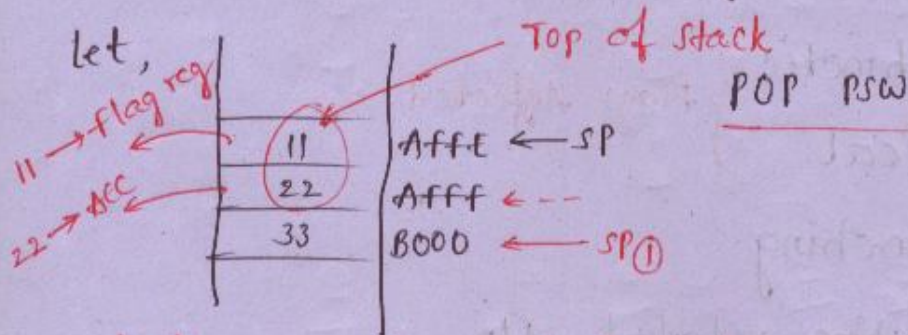 let,
Top of stack
POP PSW
11 → flag reg
11 AffE ← SP
22 → ACC
22 Afff ←--
33 B000 ← SP①